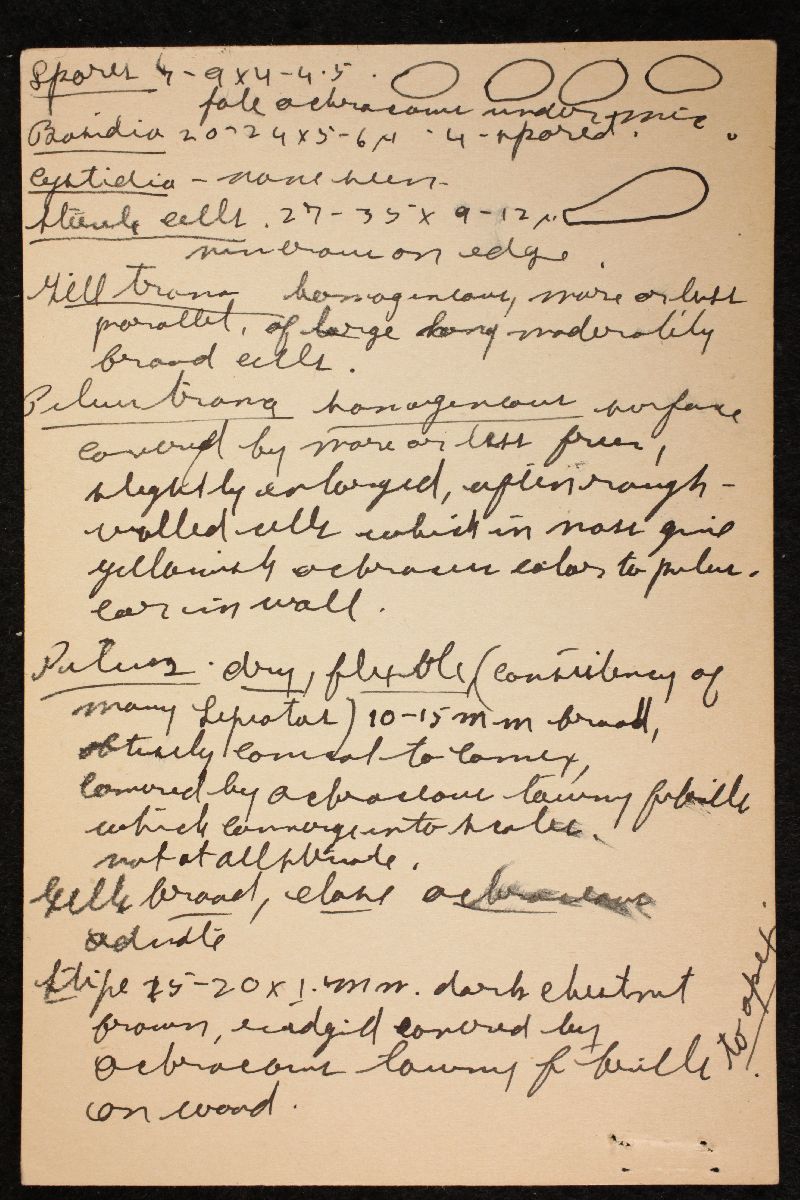 Spores 7-9x4-4.5.
pale ochraceous under mic.
Basidia 20-24x5-6µ. 4-spored.
Cystidia - none seen.
Sterile cells. 27-35x9-12µ.
numerous on edge.
Gill trama homogeneous, more or less
parallel, of large long moderately
broad cells.
Pileus trama homogeneous surface
covered by more or less free,
slightly enlarged, often rough-
walled cells which in mass give
yellowish ochraceous color to pileus.
in wall.
Pileus. dry, flexible, (consistency of
many Lepiotas) 10-15 mm broad,
obtusely conical to convex,
covered by ochraceous tawny fibrils
which converge into scales.
not at all striate.
Gills broad, close ochraceous
adnate
Stipe 15-20x1. mm. dark chestnut
brown, covered by
ochraceous tawny fibrills to apex.
on wood.